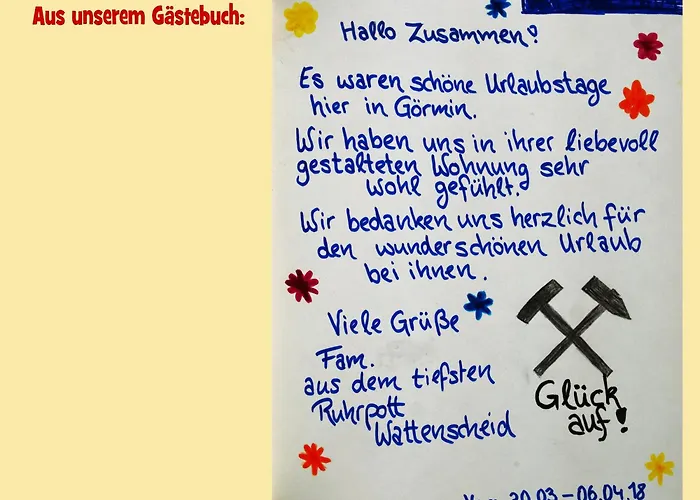 Aus unserem Gästebuch:
Hallo Zusammen!
Es waren schöne Urlaubstage
hier in Görmin.
Wir haben uns in ihrer liebevoll
gestalteten Wohnung sehr
wohl gefühlt.
Wir bedanken uns herzlich für
den wunderschönen Urlaub
bei ihnen.
Viele Grüße
Fam.
aus dem tiefsten
Ruhrpott
Wattenscheid
Glück
auf!
Vom 30.03-06.04.18